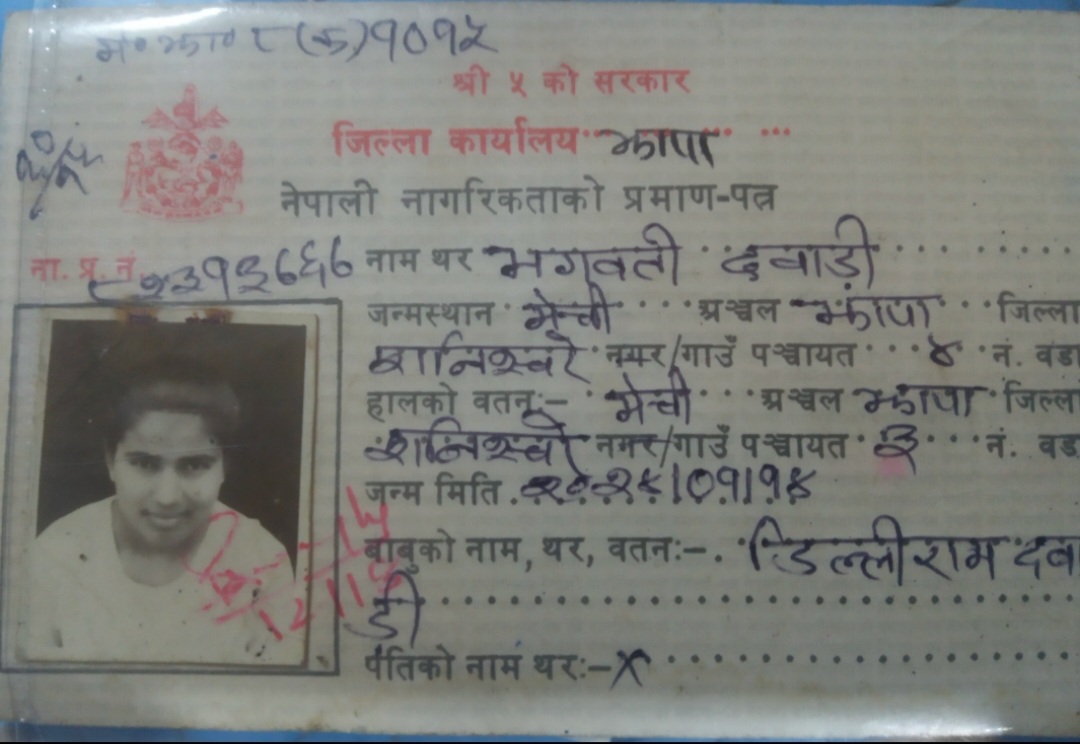 श्री ५ को सरकार
जिल्ला कार्यालय झापा
नेपाली नागरिकताको प्रमाण-पत्र
ना. प्र. नं.
नाम थर भगवती दवाडी
जन्मस्थान मेची अञ्चल झापा जिल्ला
शनिश्चरे नगर/गाउँ पञ्चायत ४ नं. वडा
हालको वतन:- मेची अञ्चल झापा जिल्ला
शनिश्चरे नगर/गाउँ पञ्चायत ३ नं. वडा
जन्म मिति
बाबुको नाम, थर, वतन:- डिल्लीराम दवा
डी
पतिको नाम थर:- X